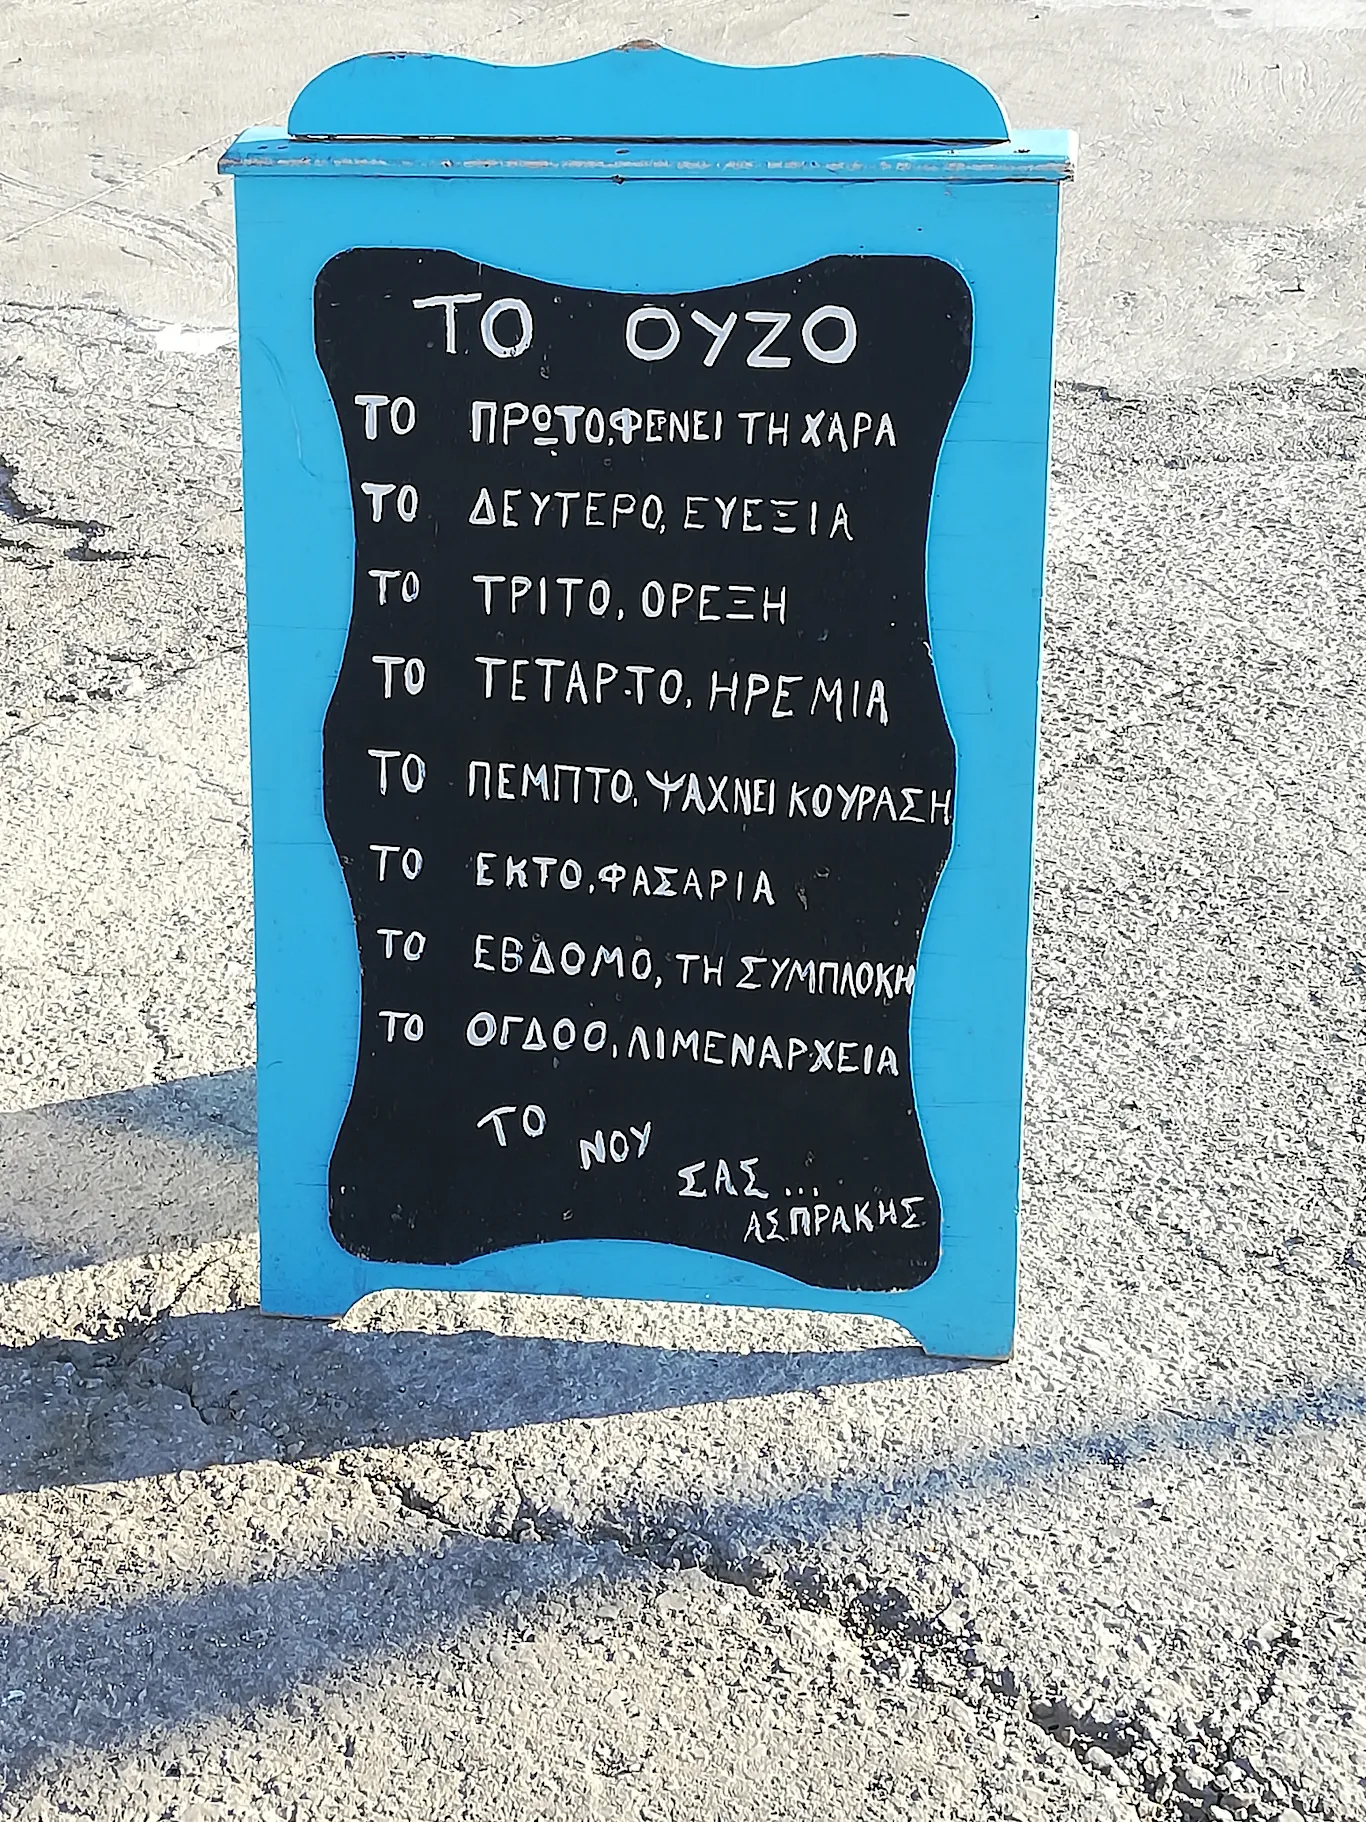 ΤΟ ΟΥΖΟ
ΤΟ ΠΡΩΤΟ,ΦΕΡΝΕΙ ΤΗ ΧΑΡΑ
ΤΟ ΔΕΥΤΕΡΟ, ΕΥΕΞΙΑ
ΤΟ ΤΡΙΤΟ, ΟΡΕΞΗ
ΤΟ ΤΕΤΑΡΤΟ, ΗΡΕΜΙΑ
ΤΟ ΠΕΜΠΤΟ, ΨΑΧΝΕΙ ΚΟΥΡΑΣΗ
ΤΟ ΕΚΤΟ, ΦΑΣΑΡΙΑ
ΤΟ ΕΒΔΟΜΟ, ΤΗ ΣΥΜΠΛΟΚΗ
ΤΟ ΟΓΔΟΟ, ΛΙΜΕΝΑΡΧΕΙΑ
ΤΟ ΝΟΥ ΣΑΣ...
ΑΣΠΡΑΚΗΣ